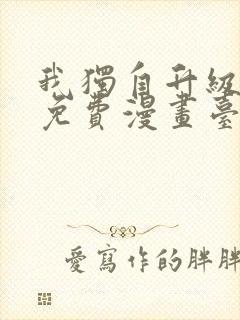 我獨自升級
免費漫畫臺
愛寫作的胖胖